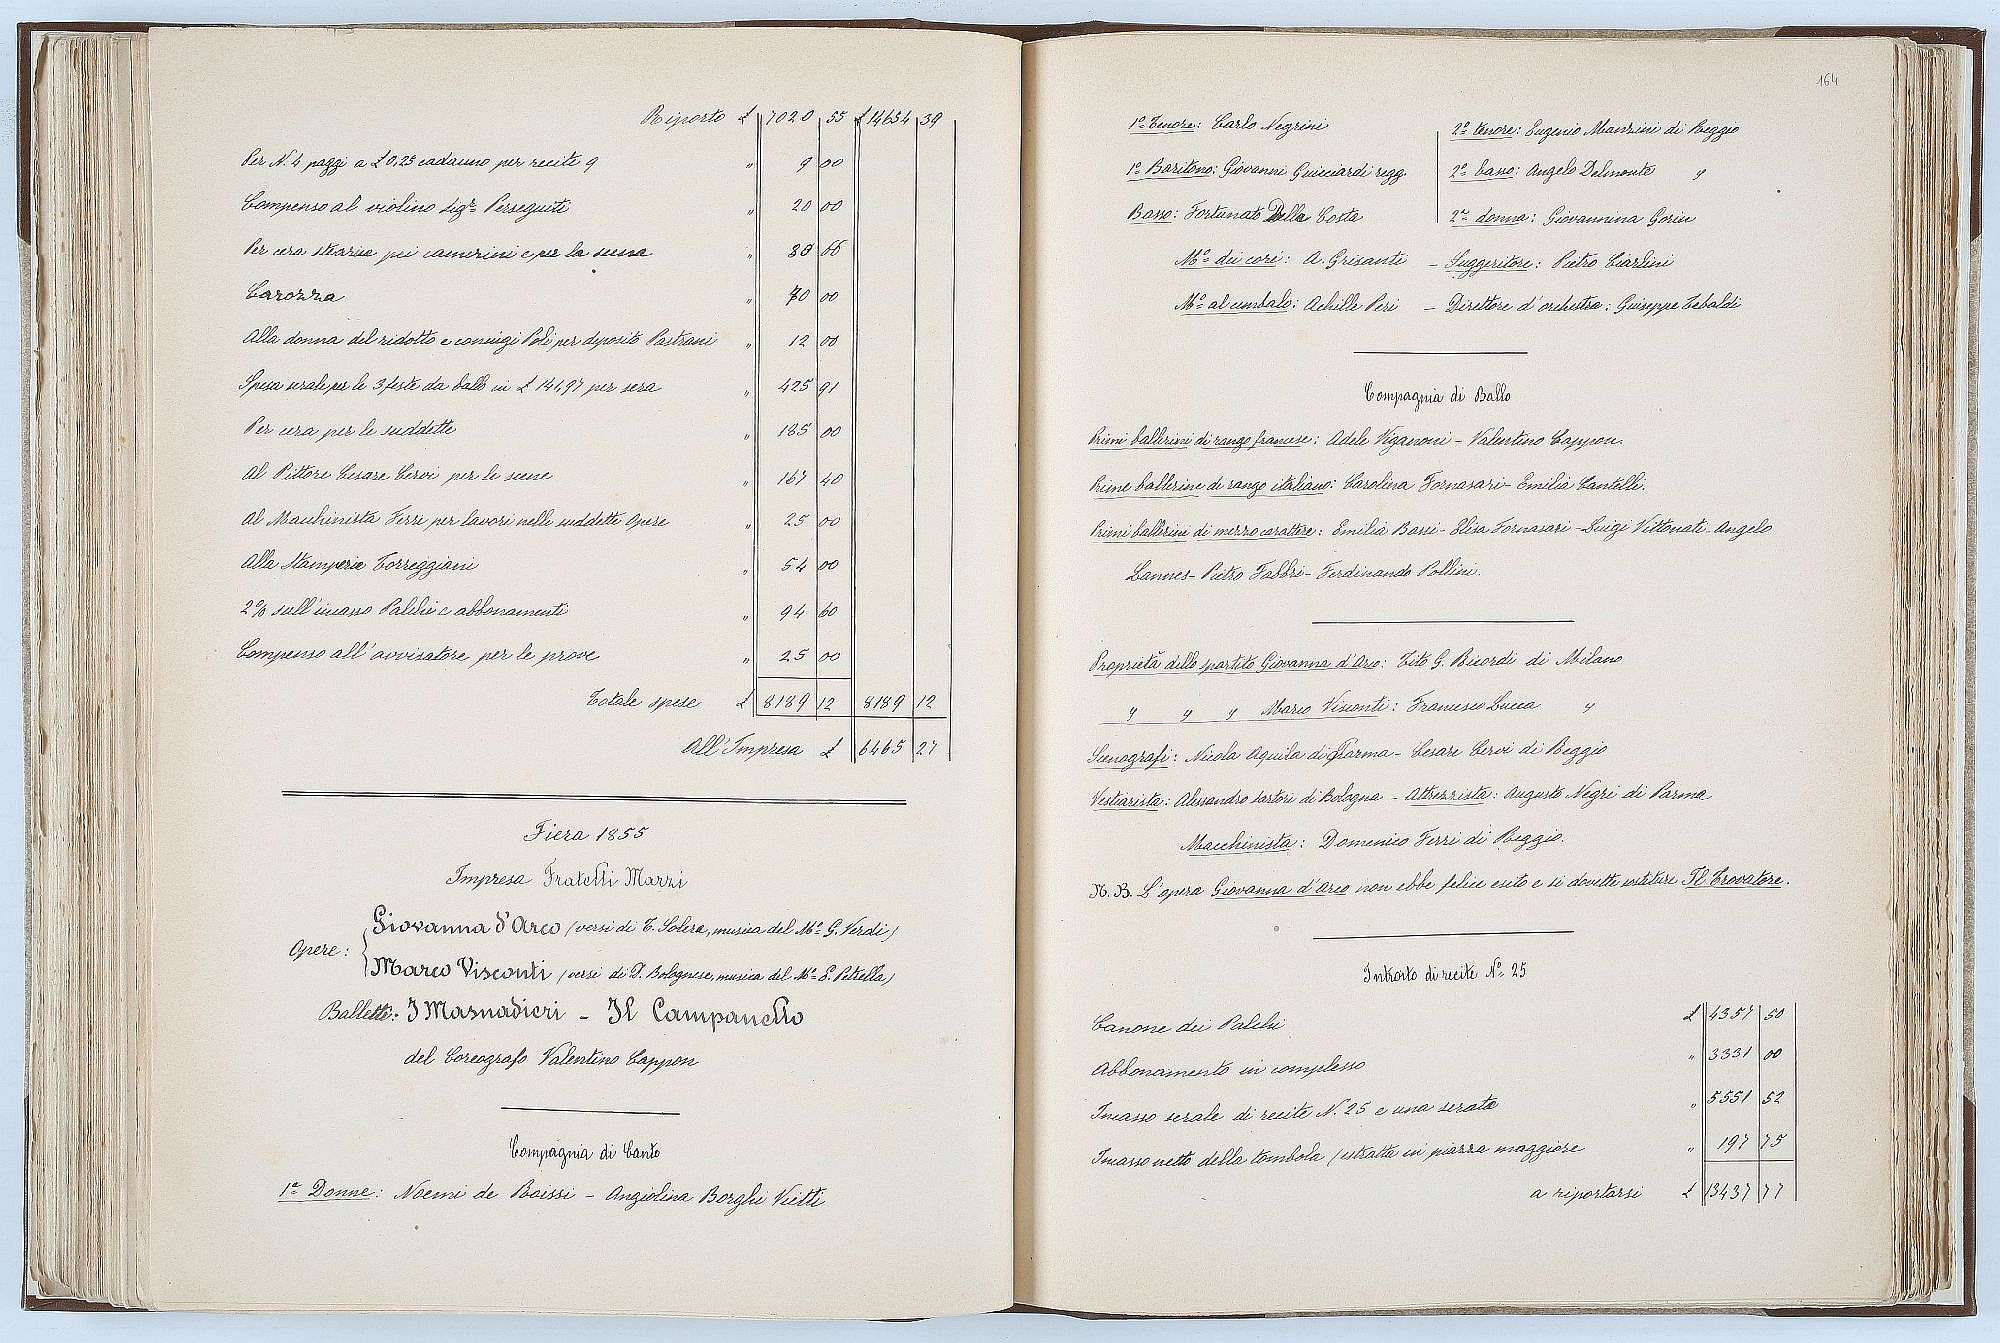 Riporto £ 7020 55 £ 14654 39
Per N. 4 paggi a £ 0,25 cadauno per recite 9 " 9 00
Compenso al violino Sigr. Perseguiti " 20 00
Per cera stearica pei camerini e per la scena " 66
Carozza " 70 00
Alla donna del ridotto e coniugi Poli per deposito Pastrani " 12 00
Spesa serale per le 3 feste da ballo in £ 141,97 per sera " 425 91
Per cera per le suddette " 185 00
Al Pittore Cesare Cervi per le scene " 167 40
Al Macchinista Ferri per lavori nelle suddette Opere " 25 00
Alla Stamperia Torreggiani " 54 00
2% sull'incasso Palchi e abbonamenti " 94 60
Compenso all'avvisatore per le prove " 25 00
Totale spese £ 8189 12 8189 12
All'Impresa £ 6465 27
Fiera 1855
Impresa Fratelli Marzi
Opere:
Giovanna d'Arco (versi di T. Solera, musica del Mo. G. Verdi)
Marco Visconti (versi di D. Bolognese, musica del Mo. E. Petrella)
Balletti: I Masnadieri - Il Campanello
del Coreografo Valentino Cappon
Compagnia di Canto
1e Donne: Noemi de Roissi - Angiolina Borghi Vietti
164
1o Tenore: Carlo Negrini
1o Baritono: Giovanni Guicciardi regg.
Basso: Fortunato Della Costa
2o tenore: Eugenio Manzini di Reggio
2o basso: Angelo Delmonte "
2a donna: Giovannina Gorin
Mo. dei cori: A. Grisanti - Suggeritore: Pietro Ciarlini
Mo. al cembalo: Achille Peri - Direttore d'orchestra: Giuseppe Tebaldi
Compagnia di Ballo
Primi ballerini di rango francese: Adele Viganoni - Valentino Cappon.
Prime ballerine di rango italiano: Carolina Fornasari - Emilia Cantelli.
Primi ballerini di mezzo carattere: Emilia Bassi - Elisa Fornasari - Luigi Vittonati - Angelo
Lannes - Pietro Fabbri - Ferdinando Pollini.
Proprietà dello spartito Giovanna d'Arco: Tito G. Ricordi di Milano
" " " Marco Visconti: Francesco Lucca "
Scenografi: Nicola Aquila di Parma - Cesare Cervi di Reggio
Vestiarista: Alessandro Sartori di Bologna - Attrezzista: Augusto Negri di Parma
Macchinista: Domenico Ferri di Reggio.
N. B. L'opera Giovanna d'Arco non ebbe felice esito e si dovette sostituire Il Trovatore.
Introito di recite No. 25
Canone dei Palchi £ 4357 50
Abbonamento in complesso " 3331 00
Incasso serale di recite N. 25 e una serata " 5551 52
Incasso netto della tombola (estratta in piazza maggiore " 197 75
a riportarsi £ 13437 77